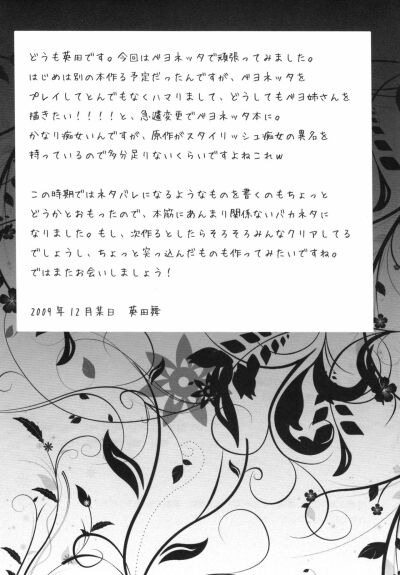 どうも英田です。今回はベヨネッタで頑張ってみました。
はじめは別の本作る予定だったんですが、ベヨネッタを
プレイしてとんでもなくハマりまして、どうしてもベヨ姉さんを
描きたい!!!!と、急遽変更でベヨネッタ本に。
かなり痴女いんですが、原作がスタイリッシュ痴女の異名を
持っているので多分足りないくらいですよねこれw
この時期ではネタバレになるようなものを書くのもちょっと
どうかとおもったので、本筋にあんまり関係ないバカネタに
なりました。もし、次作るとしたらそろそろみんなクリアしてる
でしょうし、ちょっと突っ込んだものも作ってみたいですね。
ではまたお会いしましょう!
2009年12月某日 英田舞